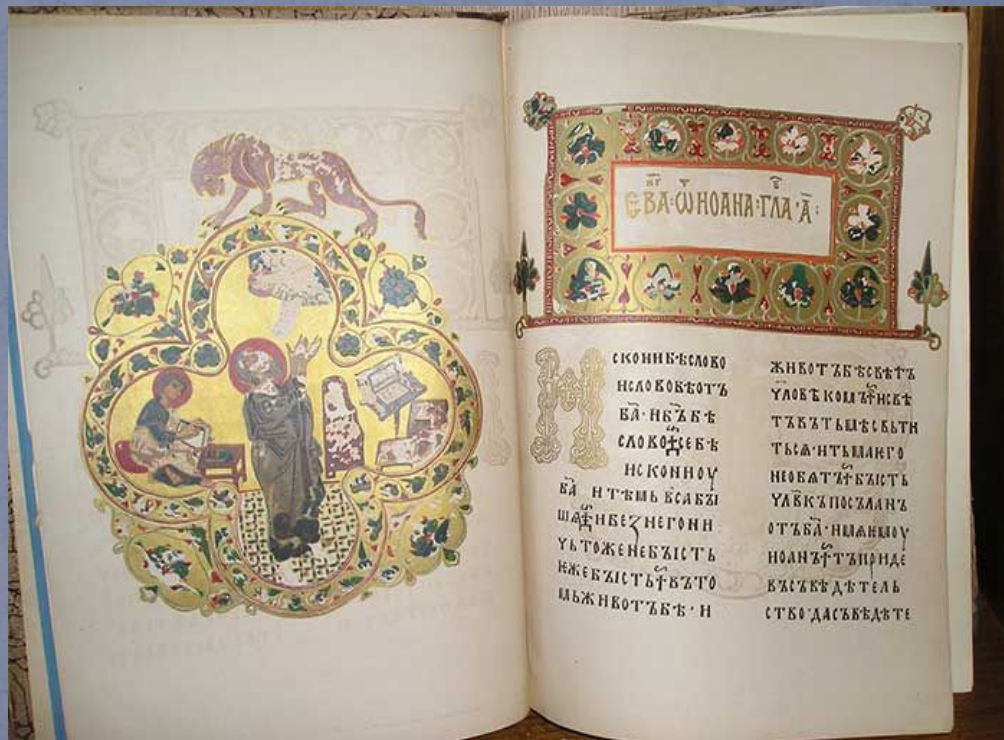 ЄВА·Ѿ ИОАНА·ГЛА·А҃:
ИСКОНИБѢСЛОВО
ИСЛОВОБѢОТЪ
БА҃·ИБ҃ЪБѢ
СЛОВО☩СЕБѢ
ИСКОНИОУ
БА҃ ИТѢМЬВСАБЫ
ШѦ☩ИБЕꙀНЕГОНИ
ЧЬТОЖЕНЕБЫСТЬ
ЕЖЕБЫСТЬ☩ВЪТО
МЬЖИВОТЪБѢ·И
ЖИВОТЪБѢСВѢТЪ
ЧЛОВѢКОМЪ☩ИСВѢ
ТЪВЪТЬМѢСВЬТИ
ТЬСѦ·ИТЬМАѤГО
НЕОБѦТЪ☩БЫСТЬ
ЧЛ҃ВКЪПОСЪЛАНЪ
ОТЪБА҃·ИМѦѤМОУ
ИОАНЪ☩ТЪПРИДЕ
ВЪСЪВѢДѢТЕЛЬ
СТВО·ДАСЪВѢДѢТЕ